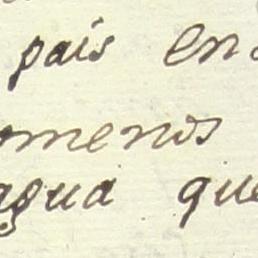 país en
omenos
agua que